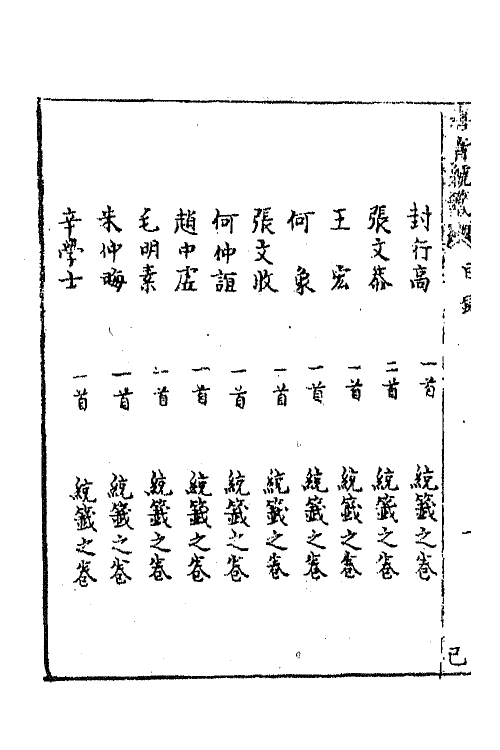 音統籤 目錄 一 已
封行高 一首 統籤之卷
張文恭 二首 統籤之卷
王宏 一首 統籤之卷
何象 一首 統籤之卷
張文收 一首 統籤之卷
何仲誼 一首 統籤之卷
趙中虛 一首 統籤之卷
毛明素 一首 統籤之卷
朱仲晦 一首 統籤之卷
辛學士 一首 統籤之卷